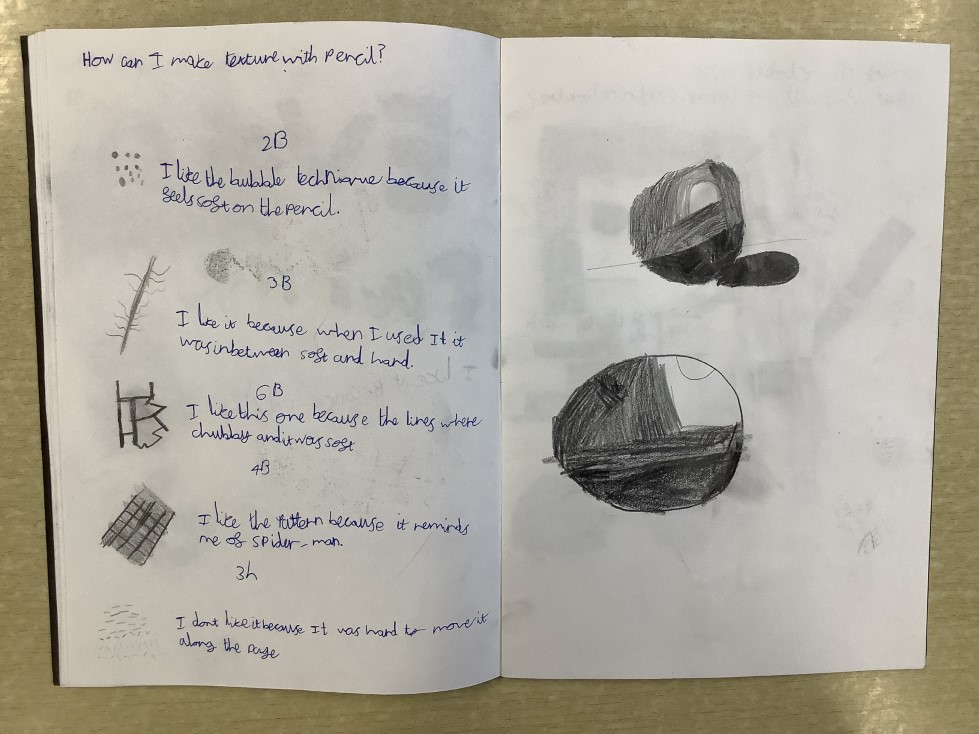 How can I make texture with pencil?
2B
I like the bubble technique because it
feels soft on the pencil.
3B
I like it because when I used It it
was inbetween soft and hard.
6B
I like this one because the lines where
chubby and it was soft
4B
I like the pattern because it reminds
me of spider-man.
3h
I dont like it because It was hard to move it
along the page